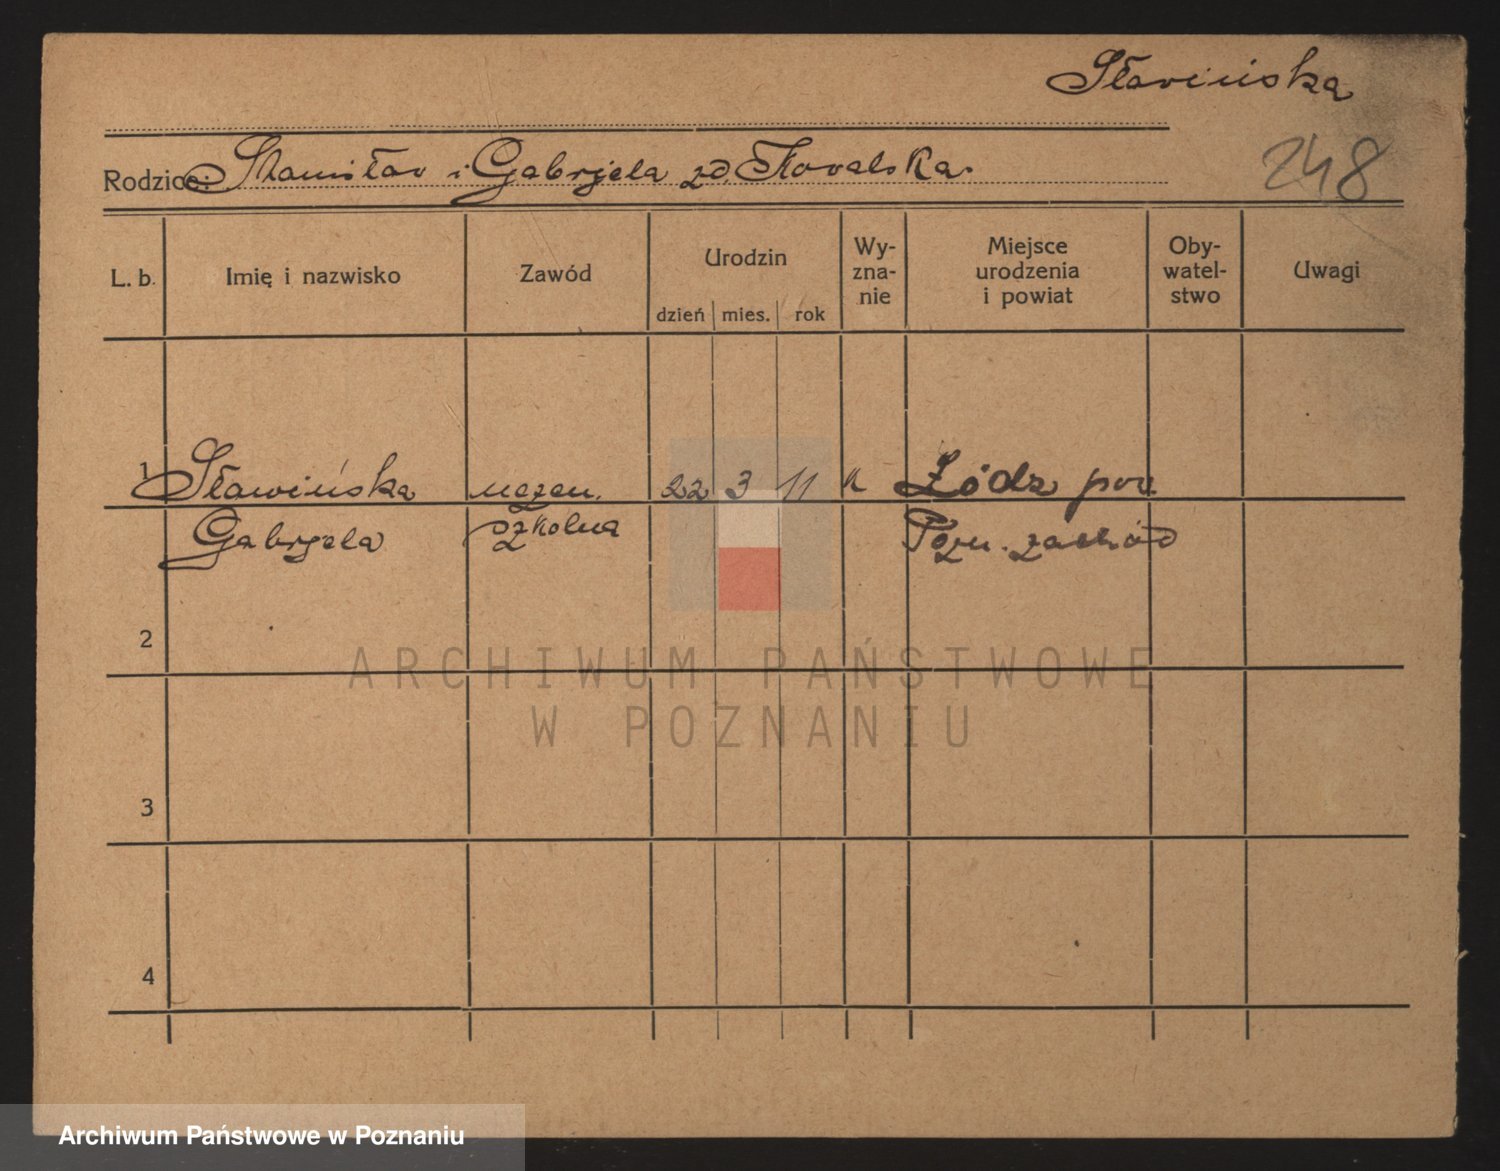 Sławińska
248
Rodzice: Stanisław i Gabrjela zd. Kowalska.
L. b. Imię i nazwisko Zawód Urodzin Wy-zna-nie Miejsce urodzenia i powiat Oby-watel-stwo Uwagi
dzień mies. rok
1 Sławińska uczen. 22 3 11 k Łódz pow.
Gabrjela szkolna Pozn. zachód
2
3
4
ARCHIWUM PAŃSTWOWE
W POZNANIU
Archiwum Państwowe w Poznaniu